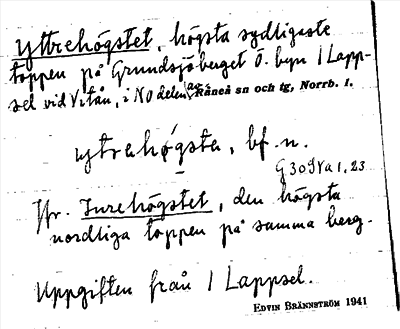 Yttrehögstet, högsta sydligaste
toppen på Grundsjöberget O. byn 1 Lapp-
sel vid Vitån, i NO delen av Råneå sn och tg, Norrb. l.
ytrahǿgsta, bf. n.
G 30 IVa 1, 23
Jfr. Inrehögstet, den högsta
nordliga toppen på samma berg.
Uppgiften från 1 Lappsel.
EDVIN BRÄNNSTRÖM 1941